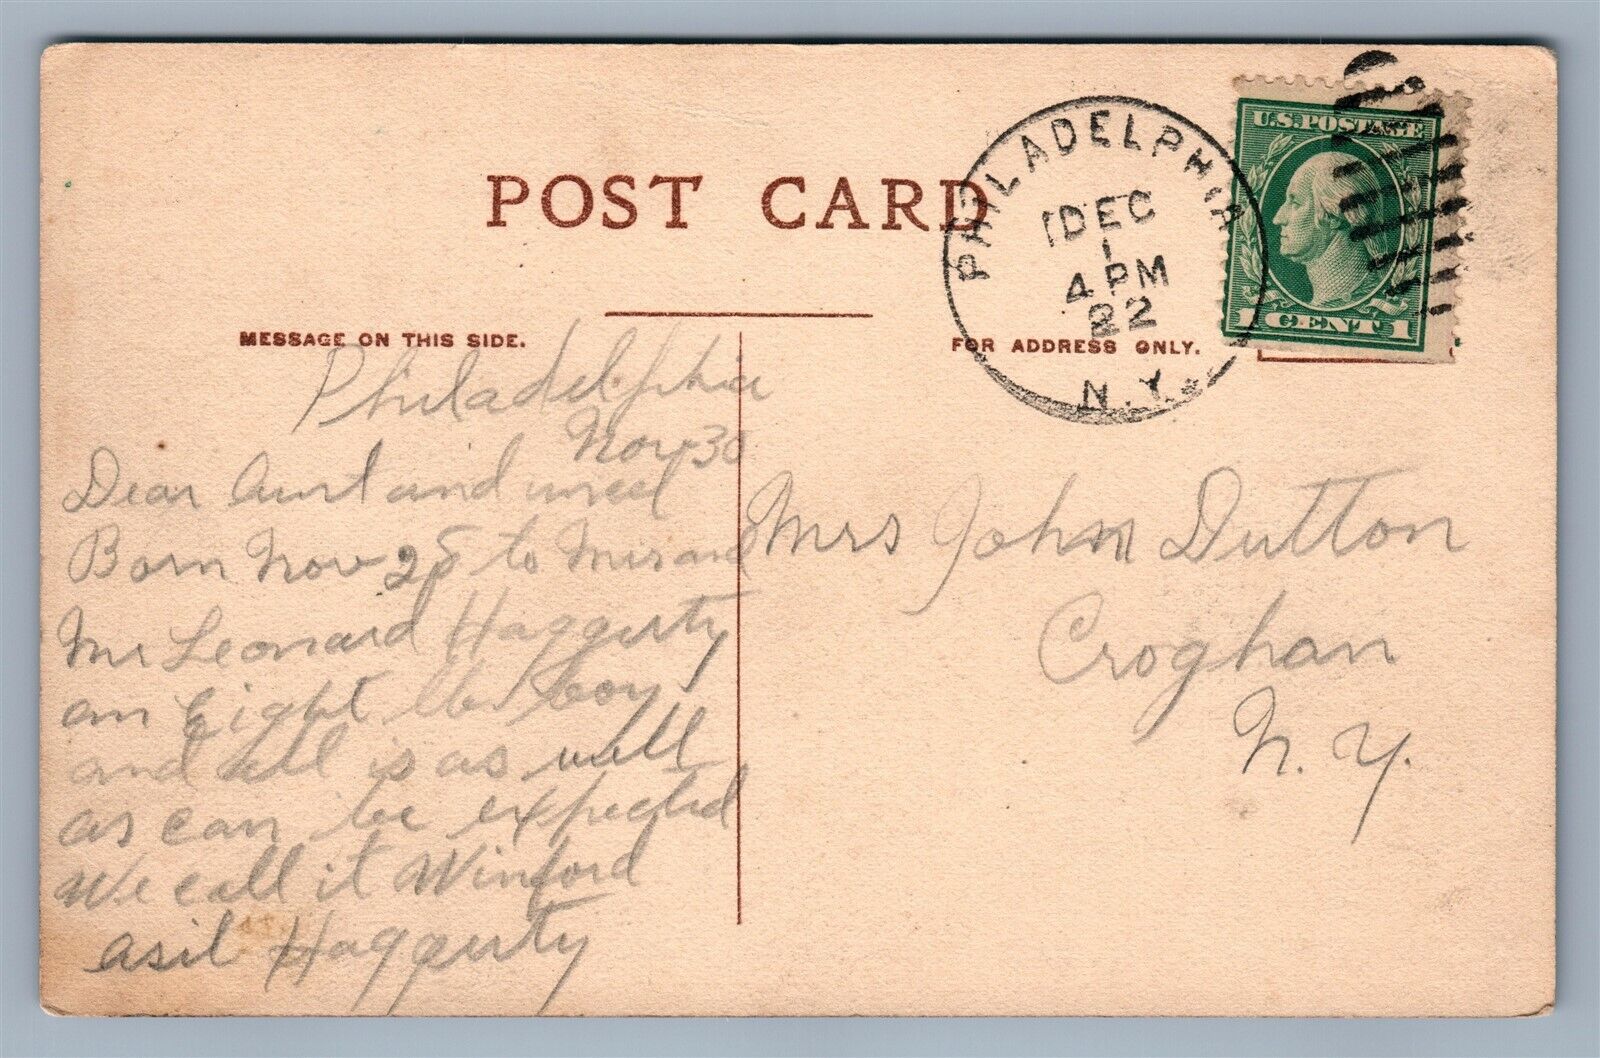 POST CARD
PHILADELPHIA
DEC
1
4 PM
22
N.Y.
U.S. POSTAGE
1 CENT 1
MESSAGE ON THIS SIDE.
FOR ADDRESS ONLY.
Philadelphia
Nov 30
Dear Aunt and uncel
Born Nov 25 to Mrs and
Mr Leonard Haggerty
an Eight lb boy
and all is as well
as can be expected
We call it Winford
asil Haggerty
Mrs John Dutton
Croghan
N.Y.